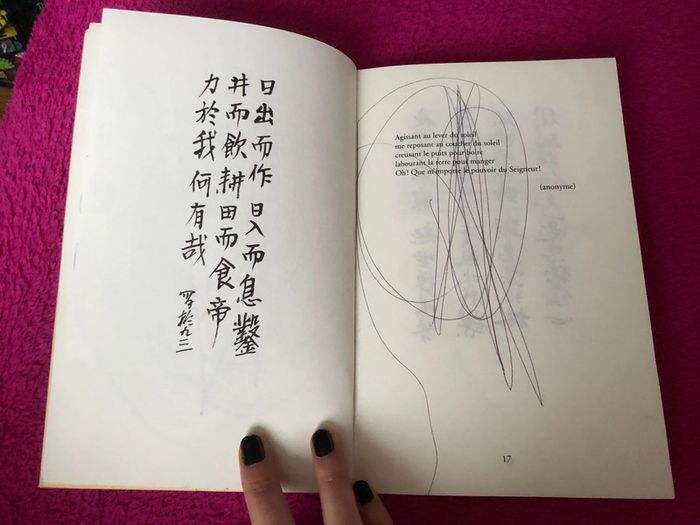 日出而作日入而息鑿
井而飲耕田而食帝
力於我何有哉
於九三
Agissant au lever du soleil
me reposant au coucher du soleil
creusant le puits pour boire
labourant la terre pour manger
Oh! Que m'importe le pouvoir du Seigneur!
(anonyme)
17